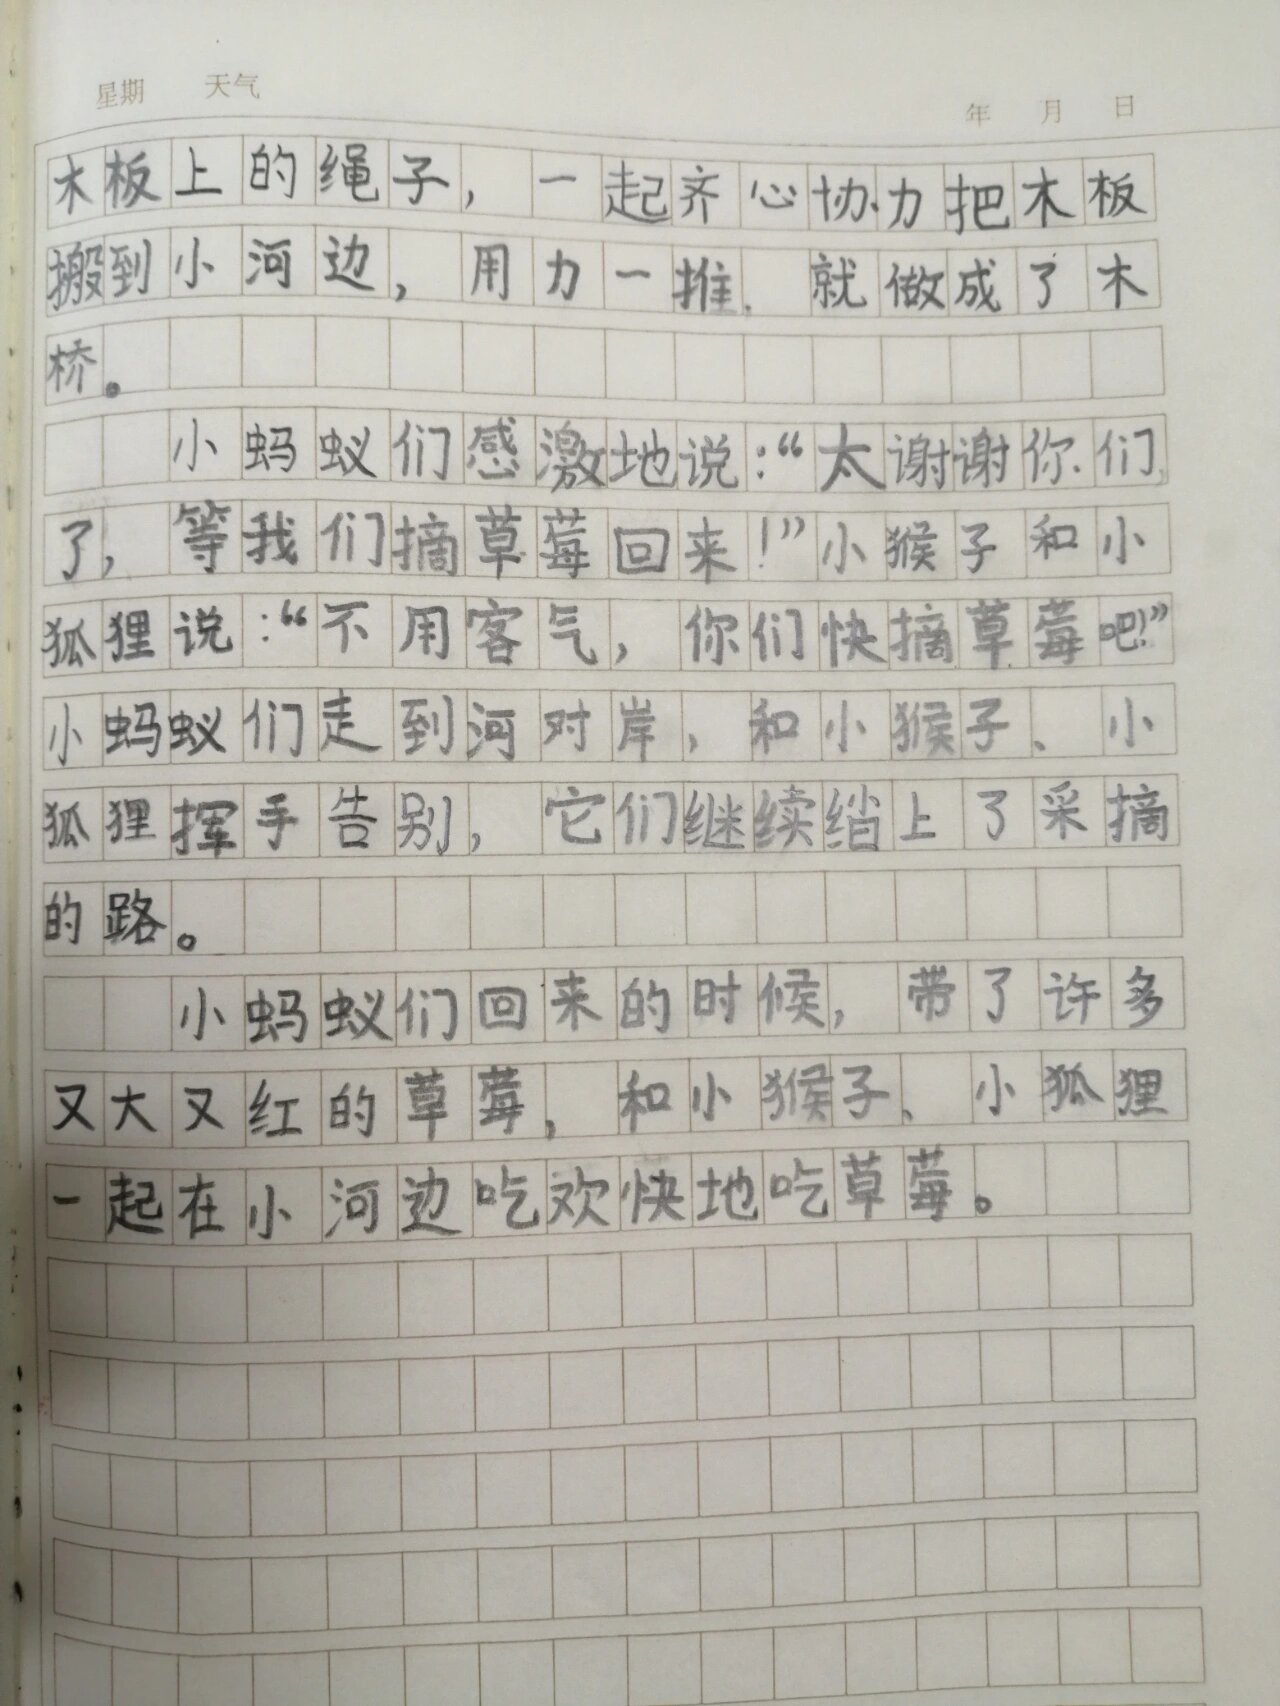 星期 天气 年 月 日
木板上的绳子，一起齐心协力把木板
搬到小河边，用力一推，就做成了木
桥。
小蚂蚁们感激地说：“太谢谢你们
了，等我们摘草莓回来！”小猴子和小
狐狸说：“不用客气，你们快摘草莓吧！”
小蚂蚁们走到河对岸，和小猴子、小
狐狸挥手告别，它们继续上了采摘
的路。
小蚂蚁们回来的时候，带了许多
又大又红的草莓，和小猴子、小狐狸
一起在小河边吃欢快地吃草莓。